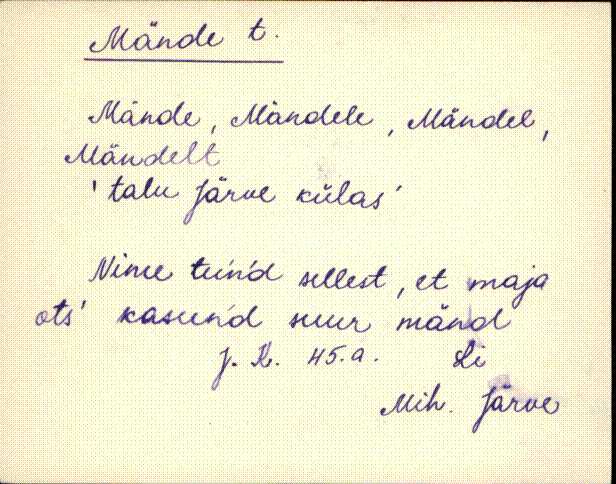 Mände t.
Mände, Mändele, Mändel,
Mändelt
'talu Järve külas'
Nime tein'd sellest, et maja
ots' kasun'd suur mänd
J. K. 45.a. Li
Mih. Järve